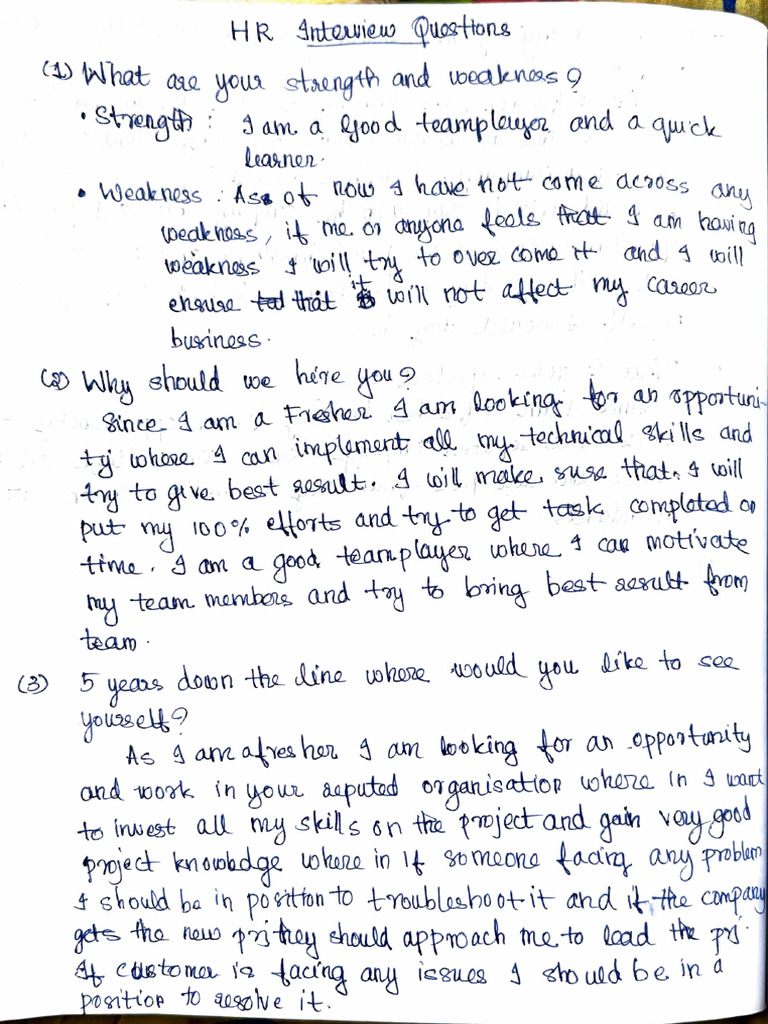 HR Interview Questions
(1) What are your strength and weakness?
• Strength : I am a good teamplauyer and a quick
learner.
• Weakness : As of now I have not come across any
weakness, if me or anyone feels that I am having
weakness I will try to over come it and I will
ensure that it will not affect my career
business.
(2) Why should we hire you?
Since I am a Fresher I am looking for an opportuni-
ty where I can implement all my technical skills and
try to give best result. I will make sure that. I will
put my 100% efforts and try to get task completed on
time. I am a good teamplayer where I can motivate
my team members and try to bring best result from
team.
(3) 5 years down the line where would you like to see
yourself?
As I am a fresher I am looking for an opportunity
and work in your reputed organisation where in I want
to invest all my skills on the project and gain very good
project knowledge where in if someone facing any problem
I should be in position to troubleshoot it and if the company
gets the new prj they should approach me to lead the prj.
If customer is facing any issues I should be in a
position to resolve it.